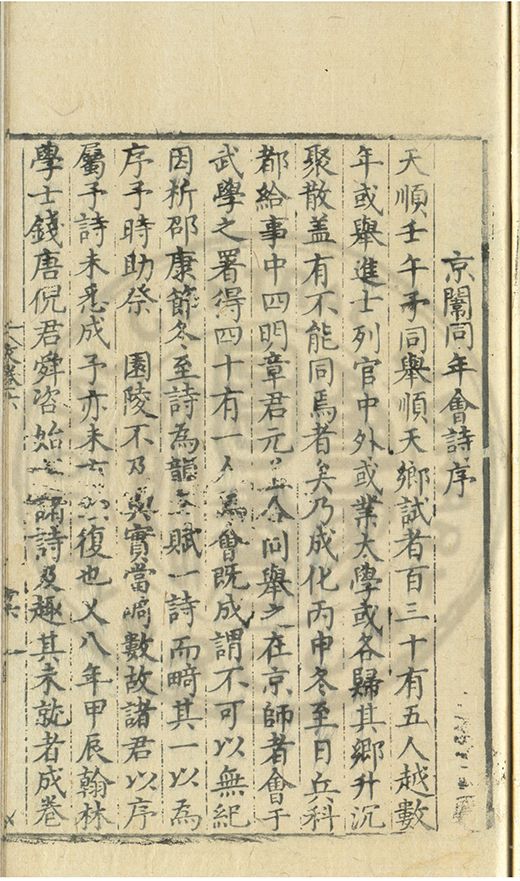 京闈同年會詩序
天順壬午予同舉順天鄉試者百三十有五人越數
年或舉進士列官中外或業太學或各歸其鄉升沉
聚散盖有不能同焉者矣乃成化丙申冬至日兵科
都給事中四明章君元益合同舉之在京師者會于
武學之署得四十有一人為會既成謂不可以無紀
因析邵康節冬至詩為韻各賦一詩而畸其一以為
序予時助祭 園陵不及與實當畸數故諸君以序
屬予詩未悉成予亦未有以復也又八年甲辰翰林
學士錢唐倪君舜咨始 諸詩及趣其未就者成卷
文卷六